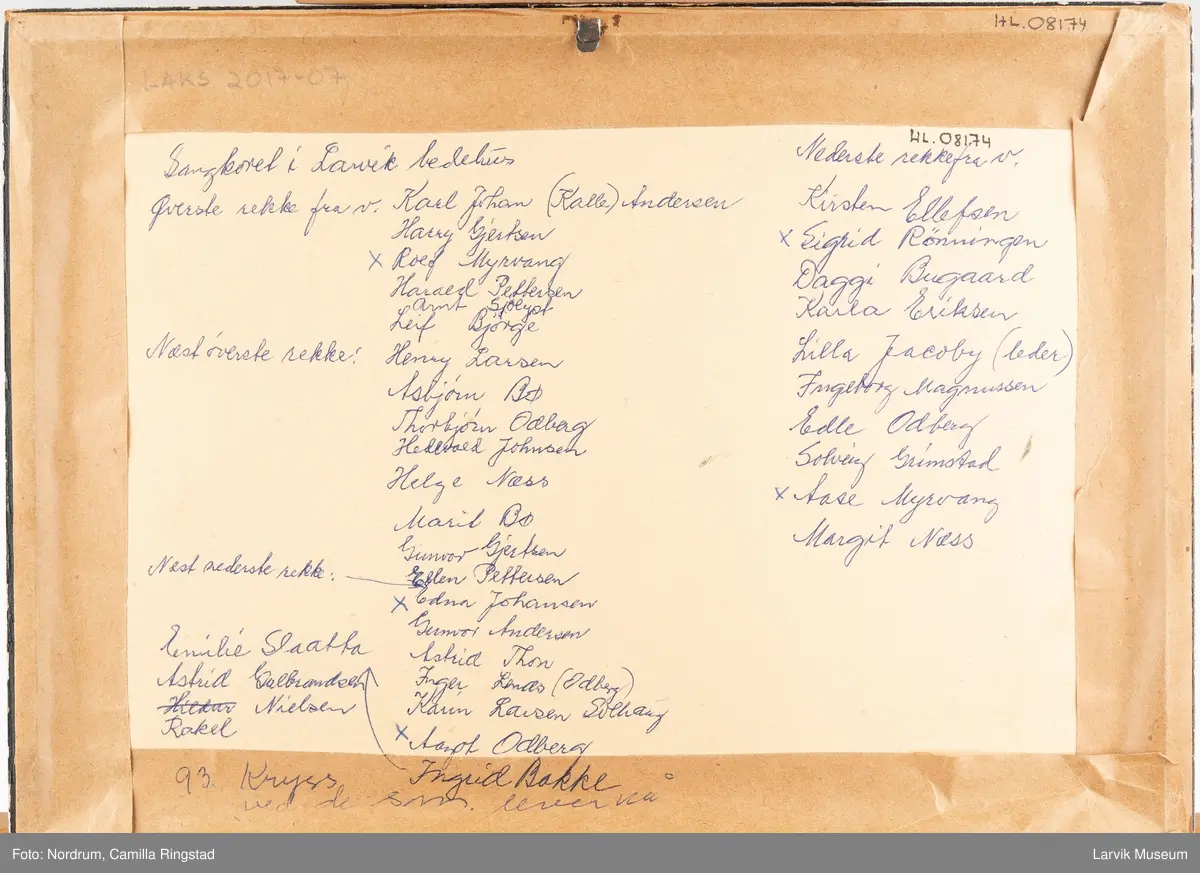 HL.08174
LAKS 2017-07
HL.08174
Sangkoret i Larvik bedehus
Øverste rekke fra v. Karl Johan (Kalle) Andersen
Harry Gjertsen
x Roef Myrvang
Haraed Pettersen
Arnt Sjølyst
Leif Bjørge
Næst øverste rekke: Henry Larsen
Asbjørn Bø
Thorbjørn Odberg
Johnsen
Helge Næss
Marit Bø
Gunvor Gjertsen
Næst nederste rekke: Ellen Pettersen
x Edna Johansen
Gunvor Andersen
Astrid Thon
Inger Lonås (Odberg)
Karin Larsen Solhaug
x Aagot Odberg
Ingrid Bakke
Emilie Slaatta
Astrid Gulbrandsen
Nielsen
Rakel
93. Kryss
ved de som lever nå
Nederste rekke fra v.
Kirsten Ellefsen
x Sigrid Rønningen
Daggi Bugaard
Karla Eriksen
Lilla Jacoby (leder)
Ingeborg Magnussen
Edle Odberg
Solveig Grimstad
x Aase Myrvang
Margit Næss
Foto: Nordrum, Camilla Ringstad
Larvik Museum